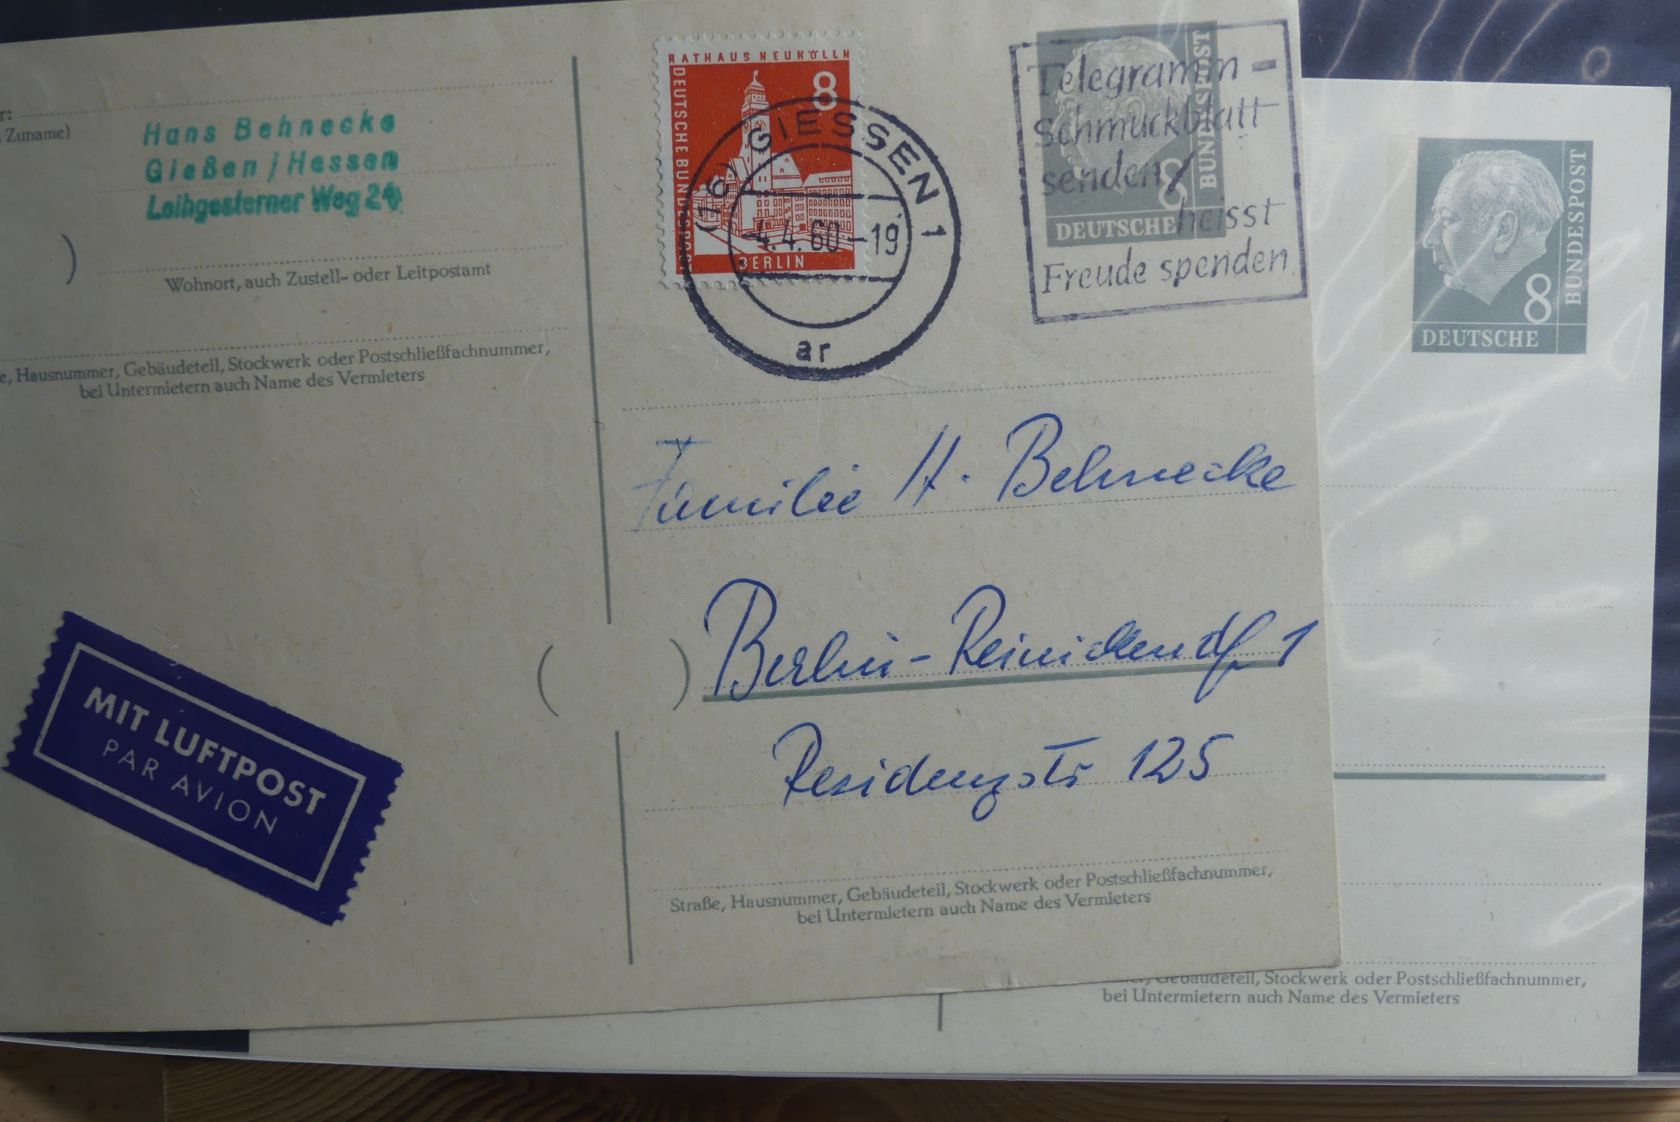 r:
Zuname)
Hans Behnecke
Gießen / Hessen
Leihgesterner Weg 24
)
Wohnort, auch Zustell- oder Leitpostamt
e, Hausnummer, Gebäudeteil, Stockwerk oder Postschließfachnummer,
bei Untermietern auch Name des Vermieters
MIT LUFTPOST
PAR AVION
RATHAUS NEUKÖLLN
8
DEUTSCHE BUNDESPOST
BERLIN
(16) GIESSEN 1
-4.4.60-19
ar
Telegramm-
Schmuckblatt
senden/
heisst
Freude spenden
8
BUNDESPOST
DEUTSCHE
Familie H. Behnecke
( )
Berlin-Reinickendf 1
Residenzstr 125
Straße, Hausnummer, Gebäudeteil, Stockwerk oder Postschließfachnummer,
bei Untermietern auch Name des Vermieters
8
BUNDESPOST
DEUTSCHE
Gebäudeteil, Stockwerk oder Postschließfachnummer,
bei Untermietern auch Name des Vermieters